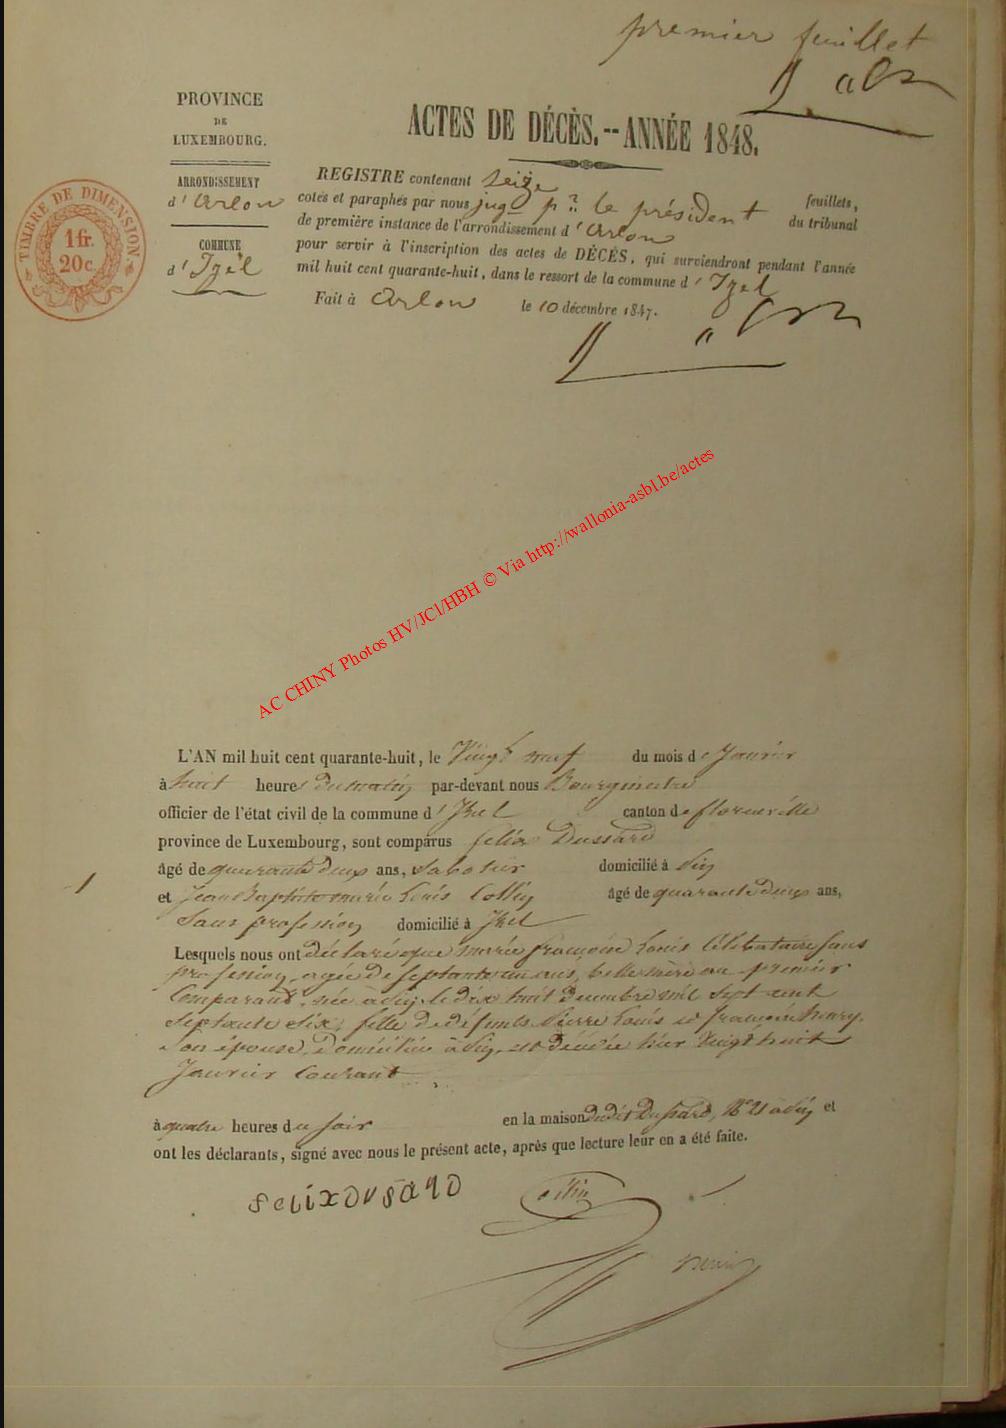 premier feuillet
PROVINCE
DE
LUXEMBOURG.
ARRONDISSEMENT
d'Arlon
COMMUNE
d'Izel
TIMBRE DE DIMENSION
1 fr.
20 c.
ACTES DE DÉCÈS.--ANNÉE 1848.
REGISTRE contenant seize feuillets,
cotés et paraphés par nous juge pr. le président du tribunal
de première instance de l'arrondissement d'Arlon
pour servir à l'inscription des actes de DÉCÈS, qui surviendront pendant l'année
mil huit cent quarante-huit, dans le ressort de la commune d'Izel
Fait à Arlon le 10 décembre 1847.
AC CHINY Photos HV/JCl/HBH © Via http://wallonia-asbl.be/actes
L'AN mil huit cent quarante-huit, le Vingt neuf du mois de Janvier
à huit heures du matin par-devant nous Bourgmestre
officier de l'état civil de la commune d'Izel canton de florenville
province de Luxembourg, sont comparus felix Dussard
âgé de quarante deux ans, Sabotier domicilié à Pin
1
et Jean Baptiste marie Louis Collin âgé de quarante deux ans,
Sans profession domicilié à Izel
Lesquels nous ont déclaré que marie françoise Louis Célibataire sans
profession, agée de septante un ans, belle mère au premier
Comparant, née à Pin, le dix huit decembre mil sept cent
septante six, fille de défunts Pierre Louis et françoise henry,
son épouse, domiciliée à Pin, est décédée hier vingt huit
Janvier Courant
à quatre heures du soir en la maison dudit Dussard, N° 21 à Pin et
ont les déclarants, signé avec nous le présent acte, après que lecture leur en a été faite.
felixDUSARD
Collin